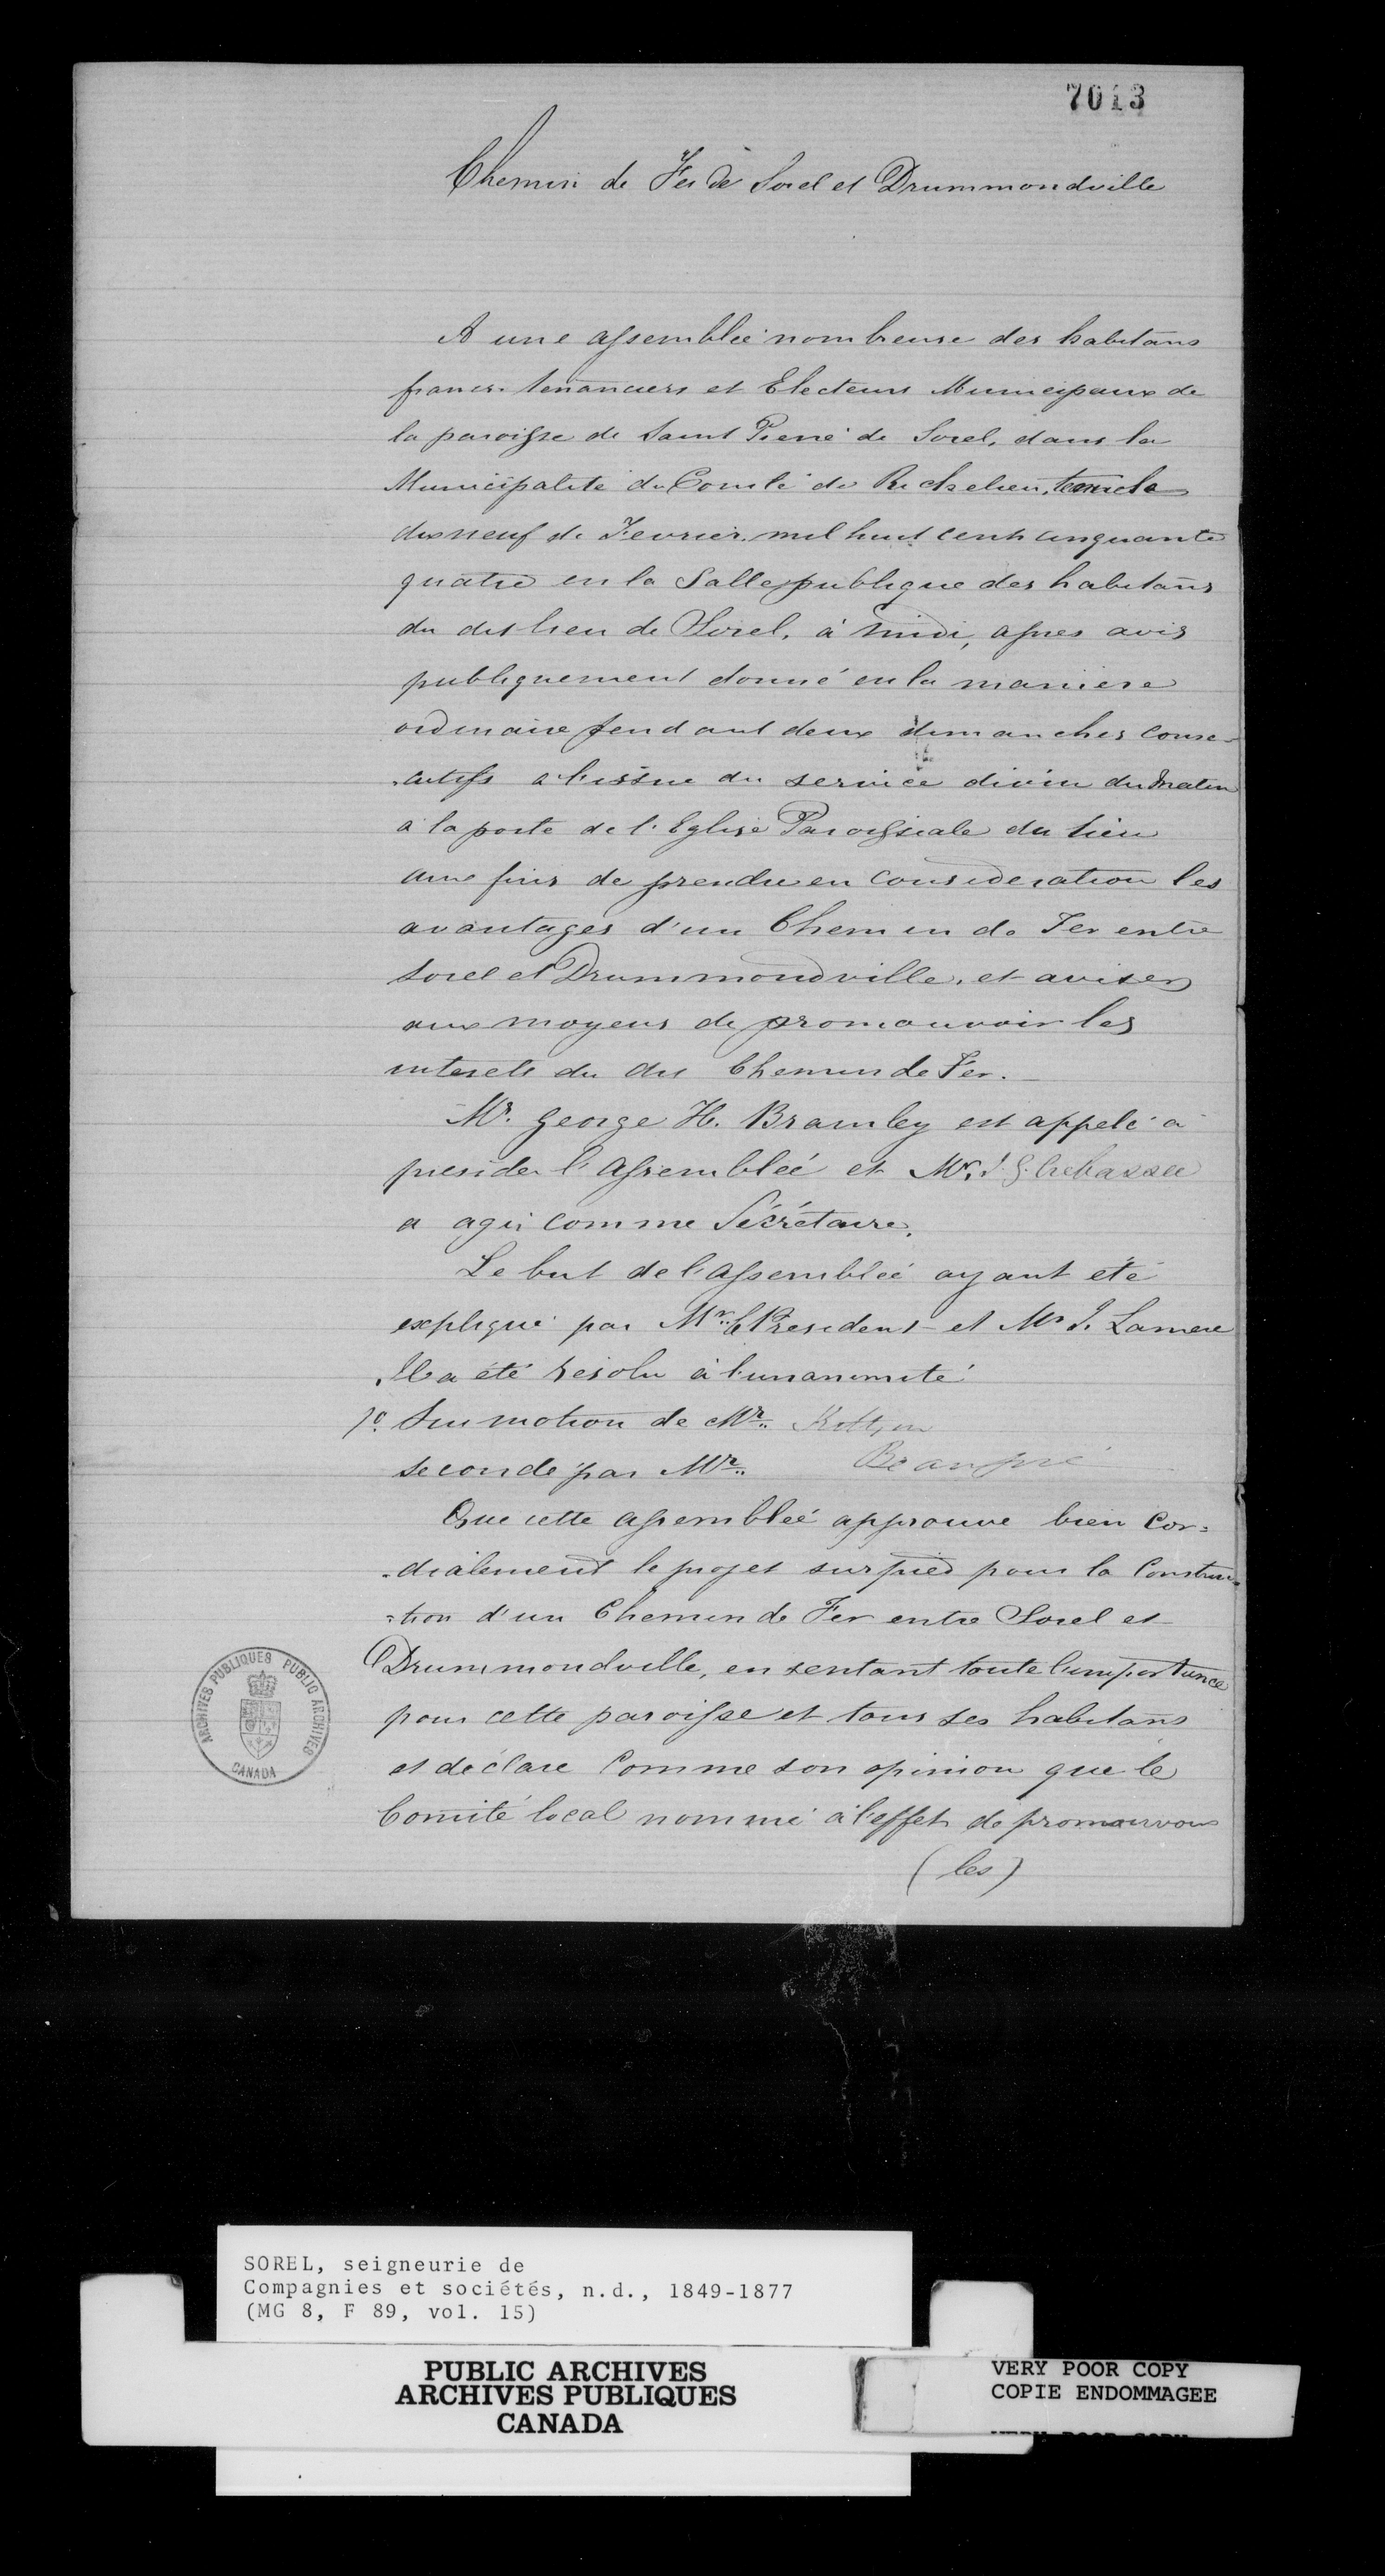 7013
Chemin de Fer de Sorel et Drummondville
A une assemblée nombreuse des habitans
francs-tenanciers et Electeurs Municipaux de
la paroisse de Saint Pierre de Sorel, dans la
Municipalité du Comté de Richelieu, tenue le
dix neuf de Fevrier mil huit cent cinquante
quatre en la Salle publique des habitans
du dit lieu de Sorel, à midi, apres avis
publiquement donné en la maniere
ordinaire pendant deux dimanches conse-
-cutifs a l'issue du service divin du Matin
à la porte de l'Eglise Paroissiale du lieu
aux fins de prendre en consideration les
avantages d'un Chemin de Fer entre
Sorel et Drummondville, et aviser
aux moyens de promouvoir les
interets du dit Chemin de Fer.
Mr. George H. Bramley est appelé à
presider l'Assemblée et Mr. J. G. Crebassa
a agi comme Sécrétaire.
Le but de l'assemblée ayant été
expliqué par Mr. le President et Mr J. Lamere
Il a été résolu à l'unanimité
1o. Sur motion de Mr.
secondé par Mr. Beaupré
Que cette assemblée approuve bien Cor=
-dialement le projet sur pied pour la Construc=
=tion d'un Chemin de Fer entre Sorel et
Drummondville, en sentant toute l'importance
pour cette paroisse et tous ses habitans
et déclare Comme son opinion que le
Comité local nommé à l'effet de promouvoir
(les)
ARCHIVES PUBLIQUES PUBLIC ARCHIVES
CANADA
SOREL, seigneurie de
Compagnies et sociétés, n.d., 1849-1877
(MG 8, F 89, vol. 15)
PUBLIC ARCHIVES
ARCHIVES PUBLIQUES
CANADA
VERY POOR COPY
COPIE ENDOMMAGEE
VERY POOR COPY